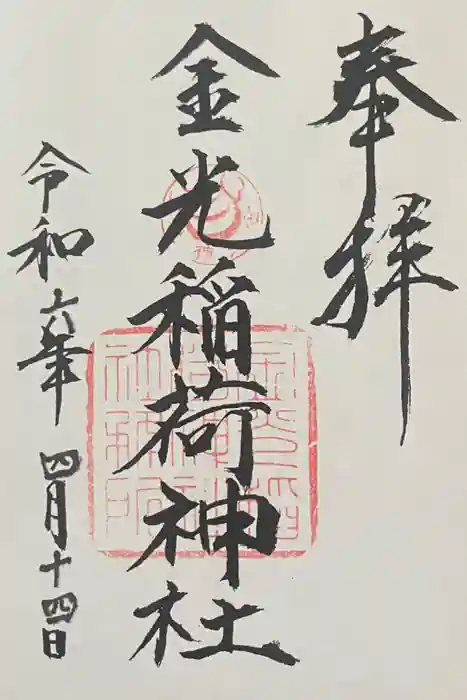 奉拝
金光稲荷神社
令和六年四月十四日